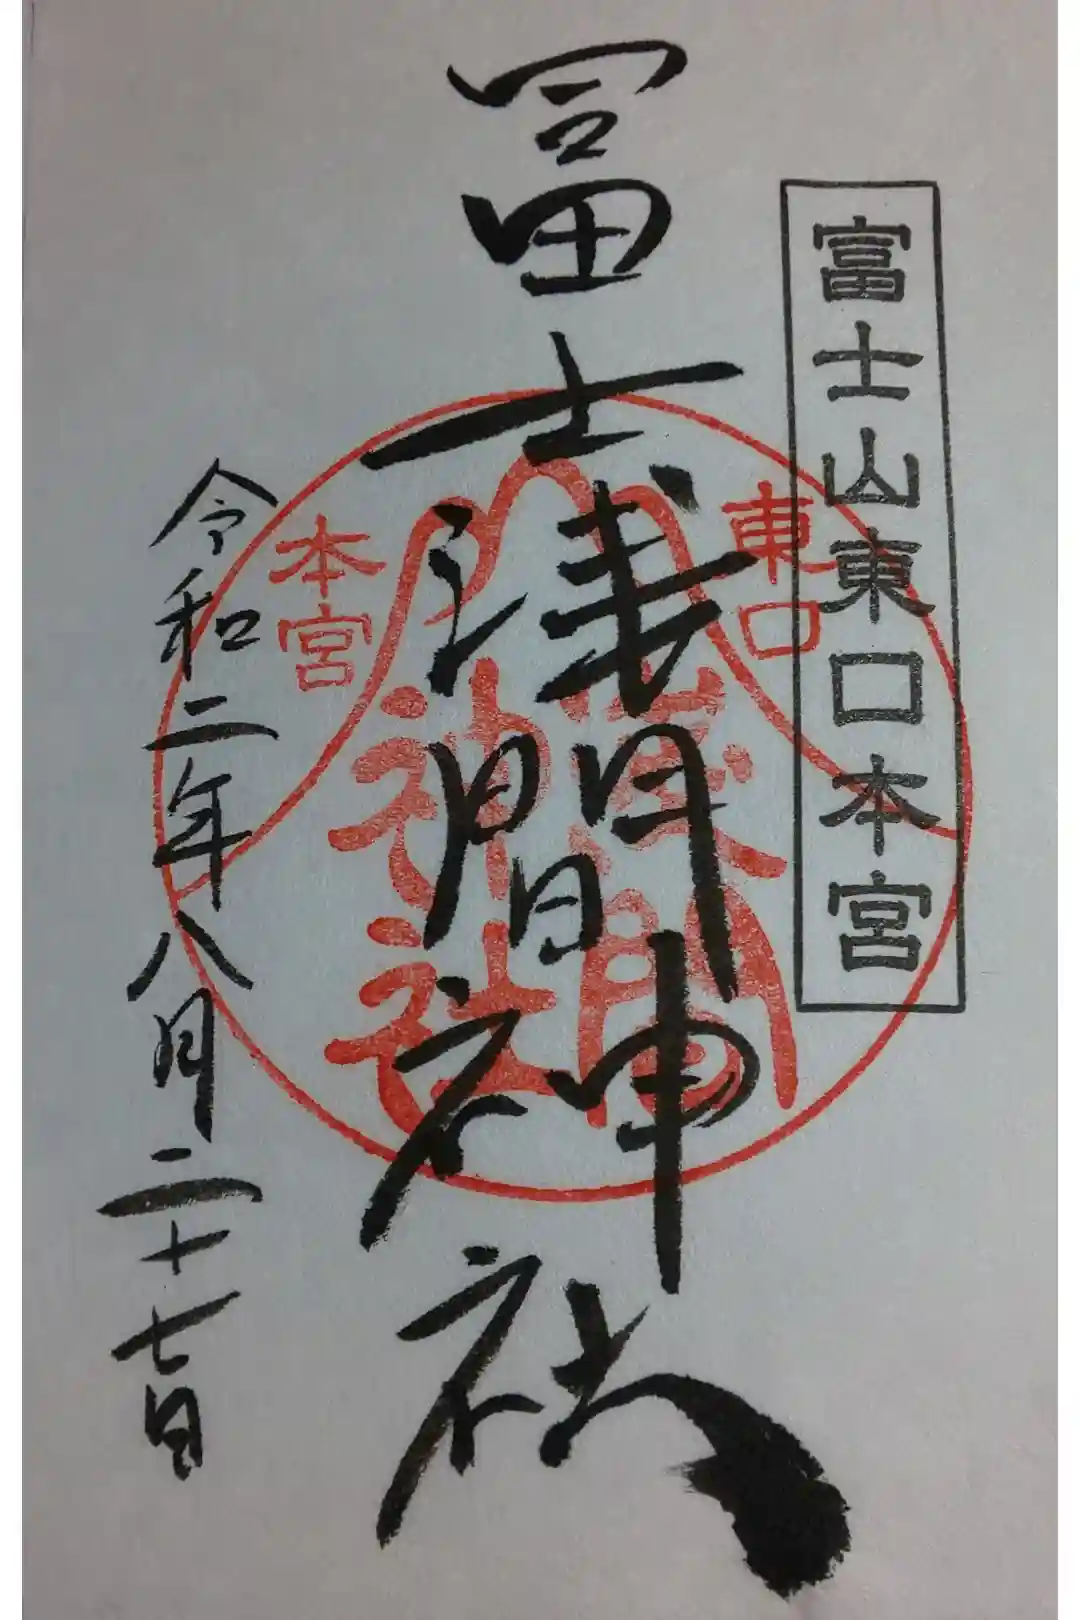 富士山東口本宮
冨士浅間神社
東口
本宮
浅間
神社
令和二年八月二十七日